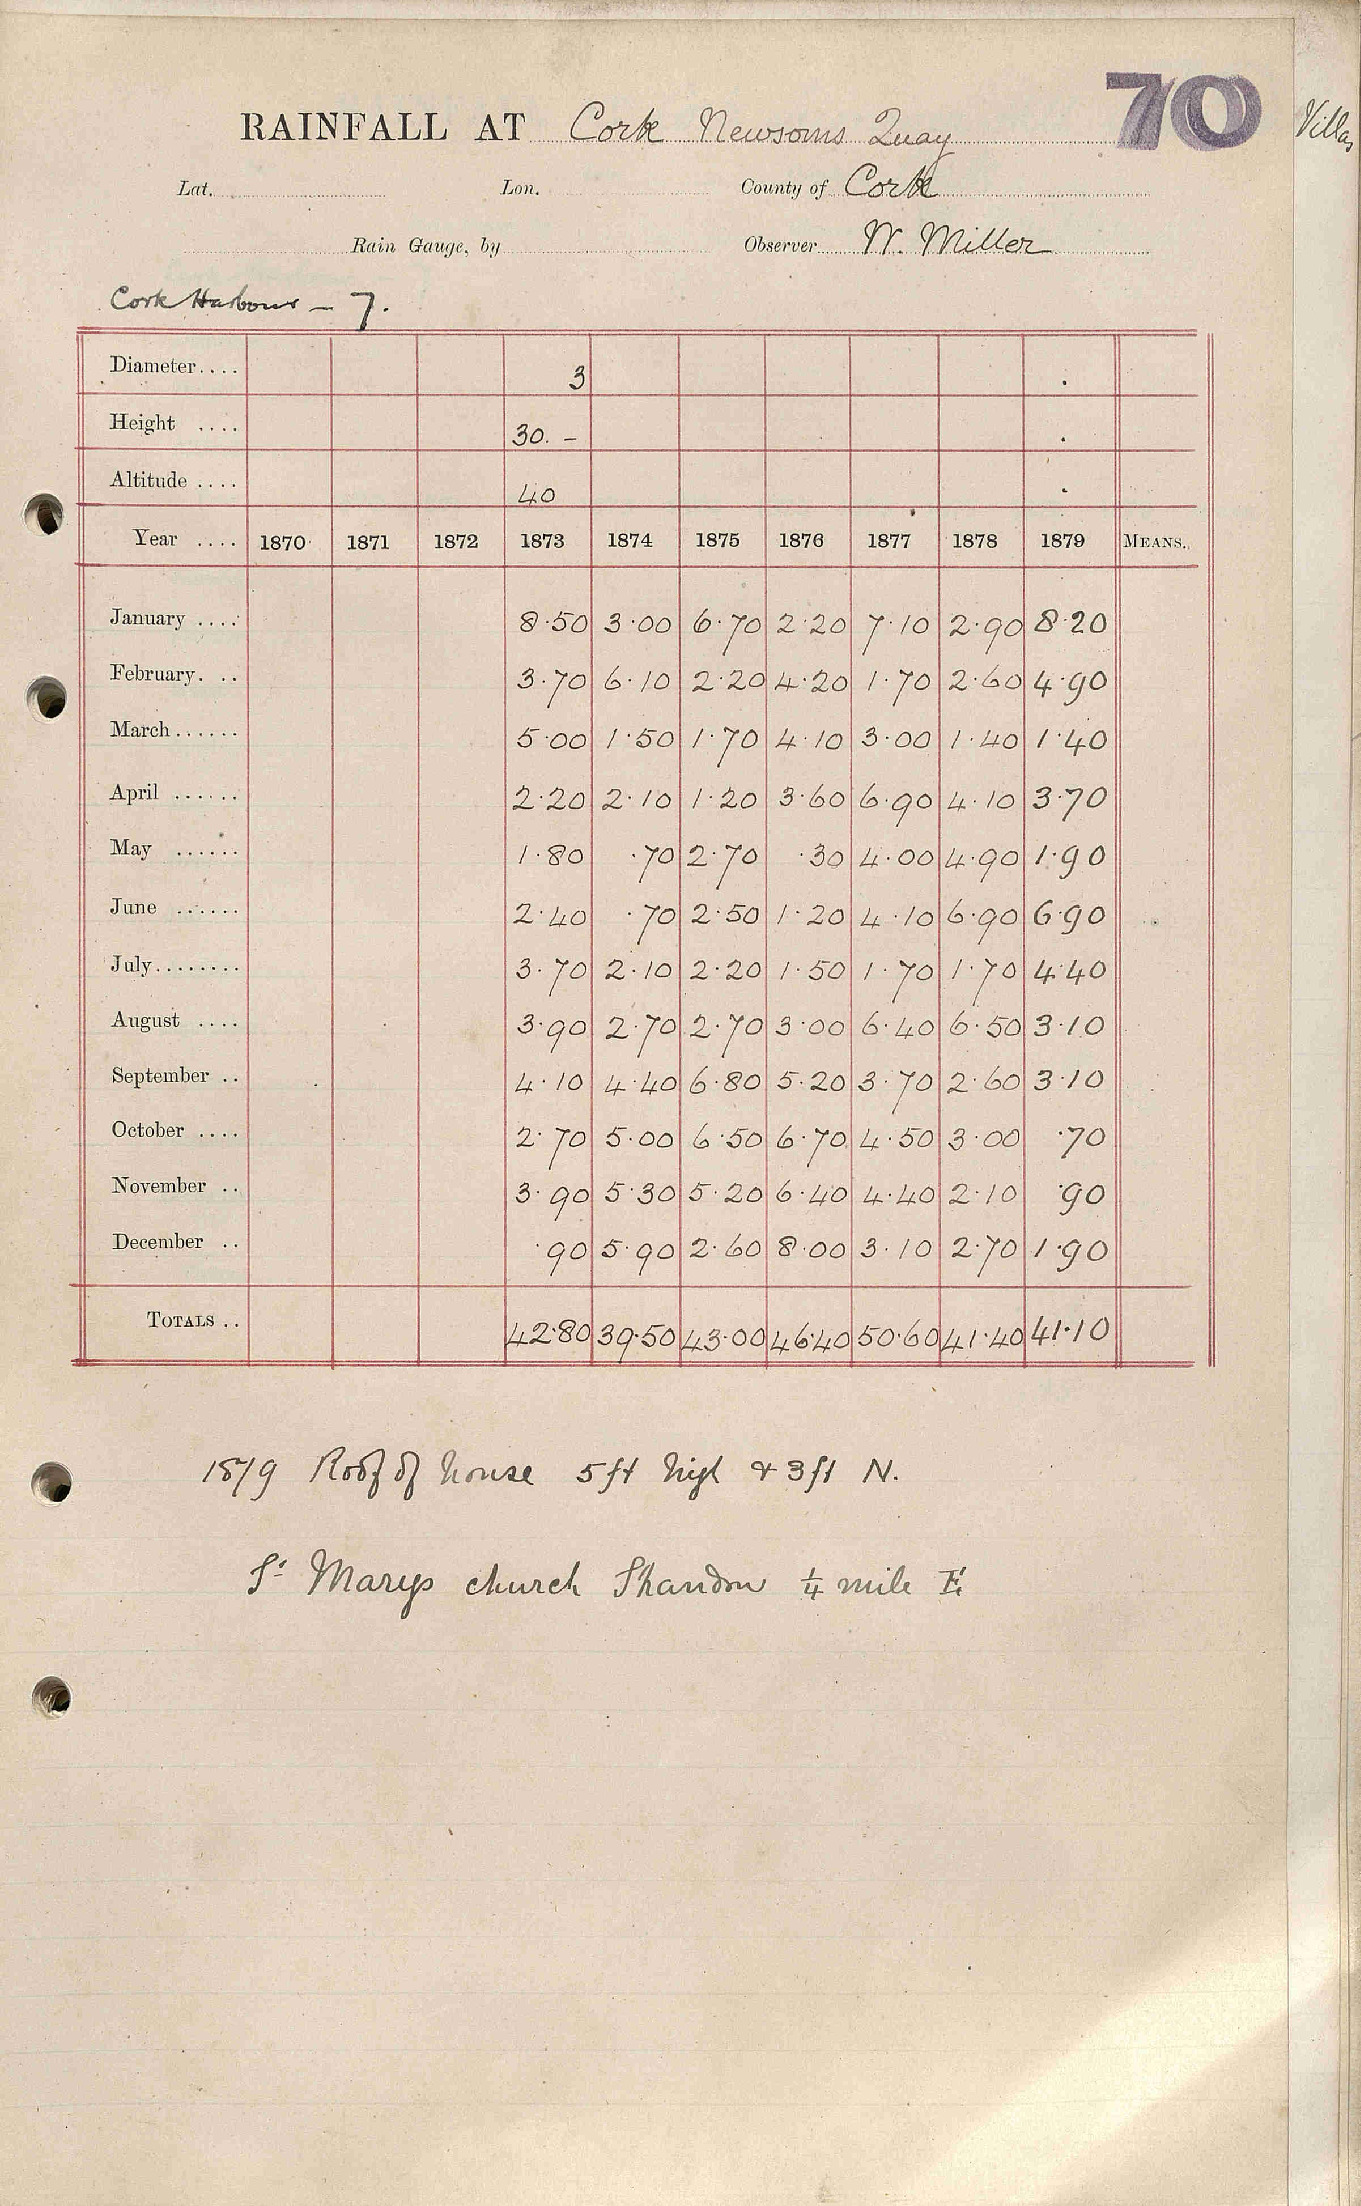 70
RAINFALL AT Cork Newsoms Quay
Villas
Lat. Lon. County of Cork
Rain Gauge, by Observer W. Miller
Cork Harbour – 7.
Diameter.... 3
Height .... 30. –
Altitude .... 40
Year .... 1870 1871 1872 1873 1874 1875 1876 1877 1878 1879 MEANS.
January .... 8·50 3·00 6·70 2·20 7·10 2·90 8·20
February. .. 3·70 6·10 2·20 4·20 1·70 2·60 4·90
March...... 5·00 1·50 1·70 4·10 3·00 1·40 1·40
April ...... 2·20 2·10 1·20 3·60 6·90 4·10 3·70
May ...... 1·80 ·70 2·70 ·30 4·00 4·90 1·90
June ...... 2·40 ·70 2·50 1·20 4·10 6·90 6·90
July........ 3·70 2·10 2·20 1·50 1·70 1·70 4·40
August .... 3·90 2·70 2·70 3·00 6·40 6·50 3·10
September .. 4·10 4·40 6·80 5·20 3·70 2·60 3·10
October .... 2·70 5·00 6·50 6·70 4·50 3·00 ·70
November .. 3·90 5·30 5·20 6·40 4·40 2·10 ·90
December .. ·90 5·90 2·60 8·00 3·10 2·70 1·90
TOTALS .. 42·80 39·50 43·00 46·40 50·60 41·40 41·10
1879 Roof of house 5 ft high & 3 ft N.
St Marys church Shandon ¼ mile E